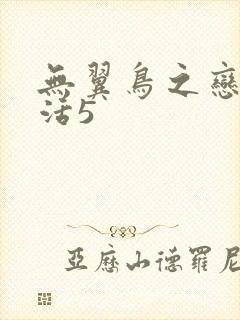 無翼鳥之戀
活5
亞歷山德羅尼